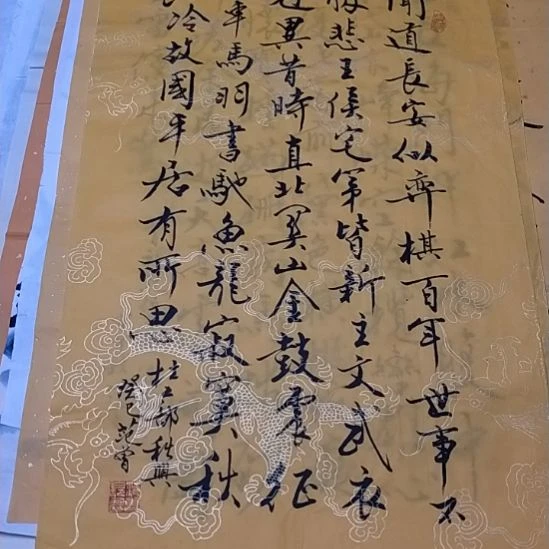 聞道長安似弈棋百年世事不
勝悲王侯宅第皆新主文武衣
冠異昔時直北關山金鼓震征
車馬羽書馳魚龍寂寞秋
冷故國平居有所思
杜工部秋興
癸巳范曾